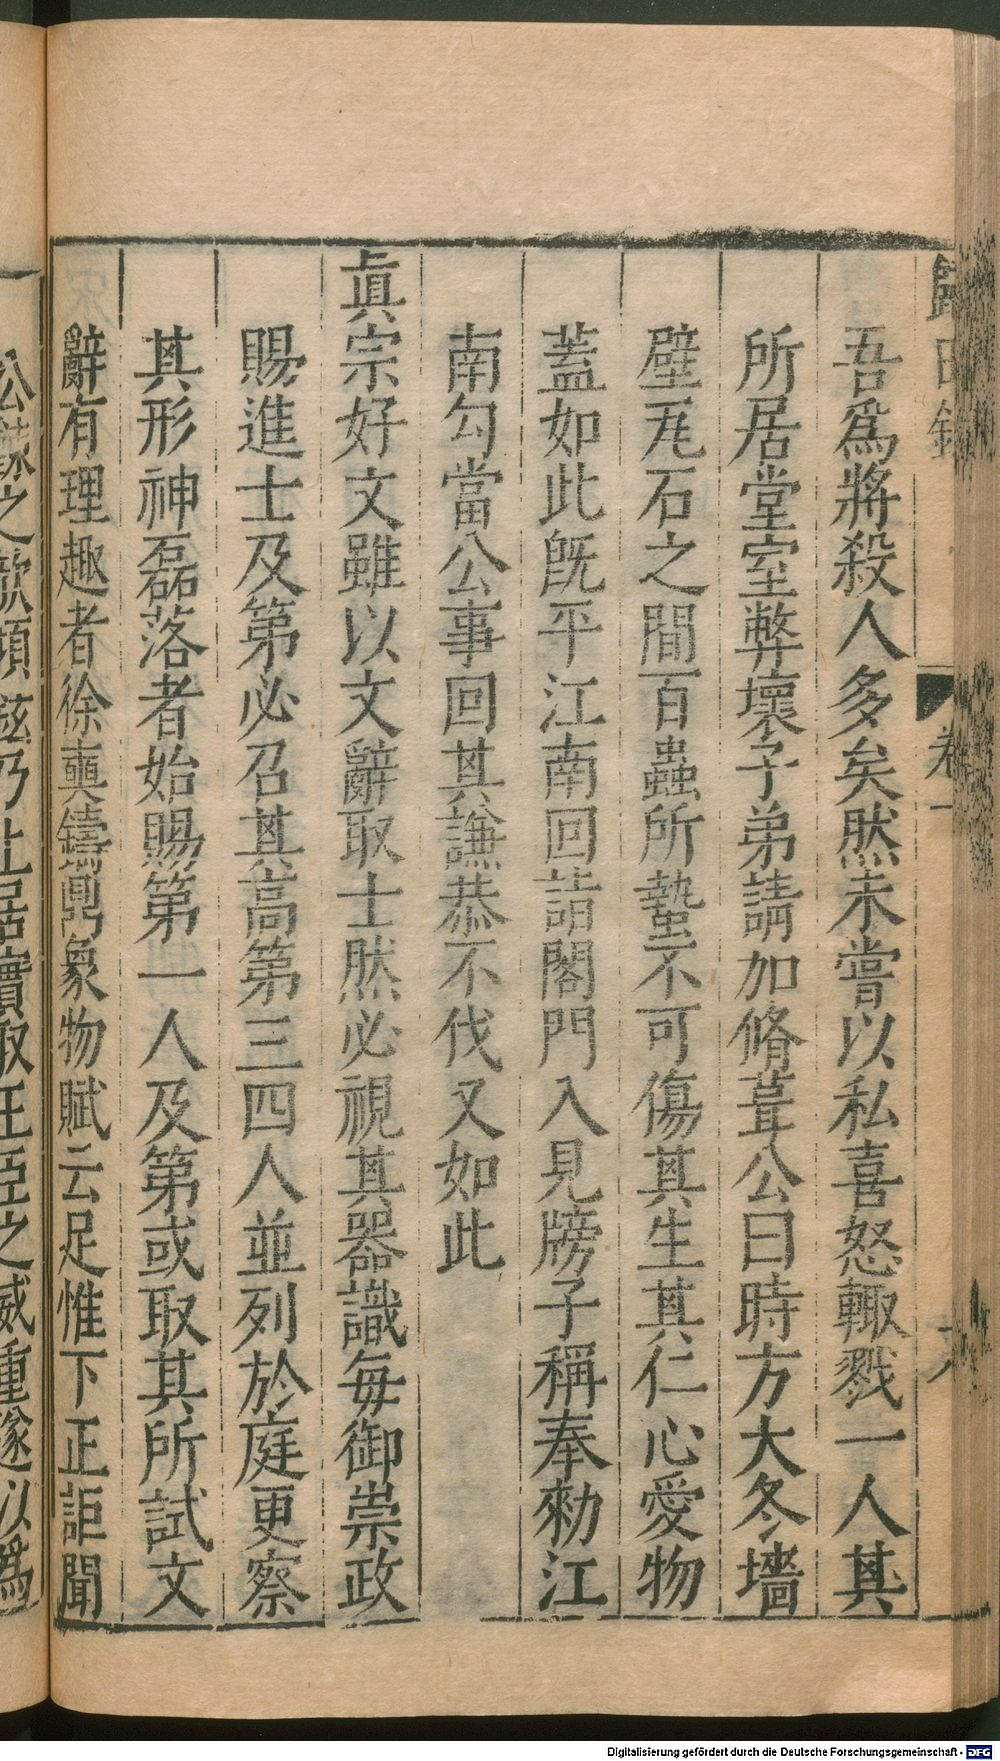 歸田錄 卷一
吾爲將殺人多矣然未嘗以私喜怒輙戮一人其
所居堂室弊壞子弟請加脩葺公曰時方大冬墻
壁瓦石之間百蟲所蟄不可傷其生其仁心愛物
蓋如此旣平江南回詣閤門入見牓子稱奉勑江
南勾當公事回其謙恭不伐又如此
眞宗好文雖以文辭取士然必視其器識每御崇政
賜進士及第必召其高第三四人並列於庭更察
其形神磊落者始賜第一人及第或取其所試文
辭有理趣者徐奭鑄鼎象物賦云足惟下正詎聞
公餗之歆傾鉉乃上居實取王臣之威重遂以爲
Digitalisierung gefördert durch die Deutsche Forschungsgemeinschaft - DFG